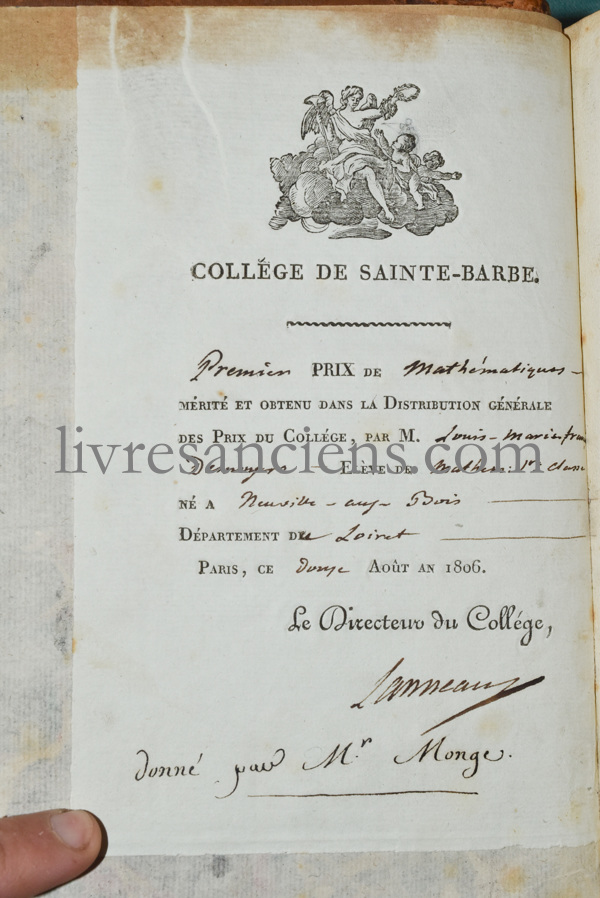 COLLÉGE DE SAINTE-BARBE.
Premier PRIX DE Mathématiques
MÉRITÉ ET OBTENU DANS LA DISTRIBUTION GÉNÉRALE
DES PRIX DU COLLÉGE, PAR M. Louis-Marie
livresanciens.com
ELÈVE DE Mathém: 1re classe
NÉ A Neuville-aux-Bois
DÉPARTEMENT du Loiret
PARIS, CE douze AOÛT AN 1806.
Le Directeur du Collége,
Lanneau
donné par Mr Monge.